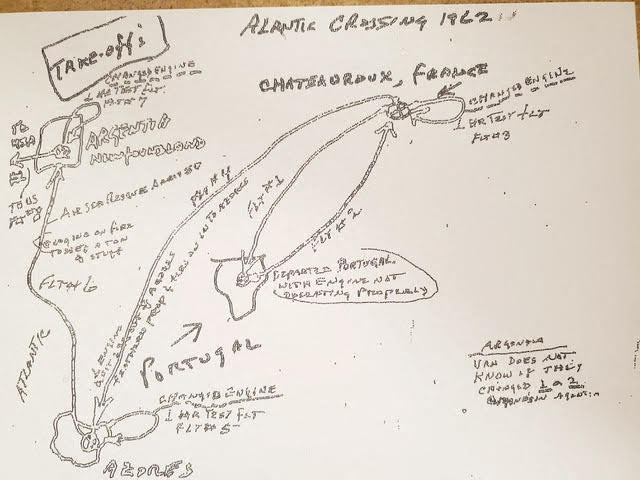 ALANTIC CROSSING 1962
TAKE-OFF'S
CHANGED ENGINE
1 HR TEST FLT.
FLT# 7
TO
USA
TO US
FLT #8
ARGENTIA
NEWFOUNDLAND
AIR SEA RESCUE
ENGINE ON FIRE
TOSSED A TON
OF STUFF
FLT#6
ATLANTIC
CHATEAUROUX, FRANCE
CHANGED ENGINE
1 HR TEST FLT
FLT #3
FLT #4
FLT #1
FLT #2
DEPARTED PORTUGAL
WITH ENGINE NOT
OPERATING PROPERLY
PORTUGAL
LOST ENGINE
OUT OF AZORES
FEATHERED PROP &
IN TO AZORES
CHANGED ENGINE
1 HR TEST FLT
FLT #5
AZORES
ARGENTIA
VAN DOES NOT
KNOW IF THEY
CHANGED 1 OR 2